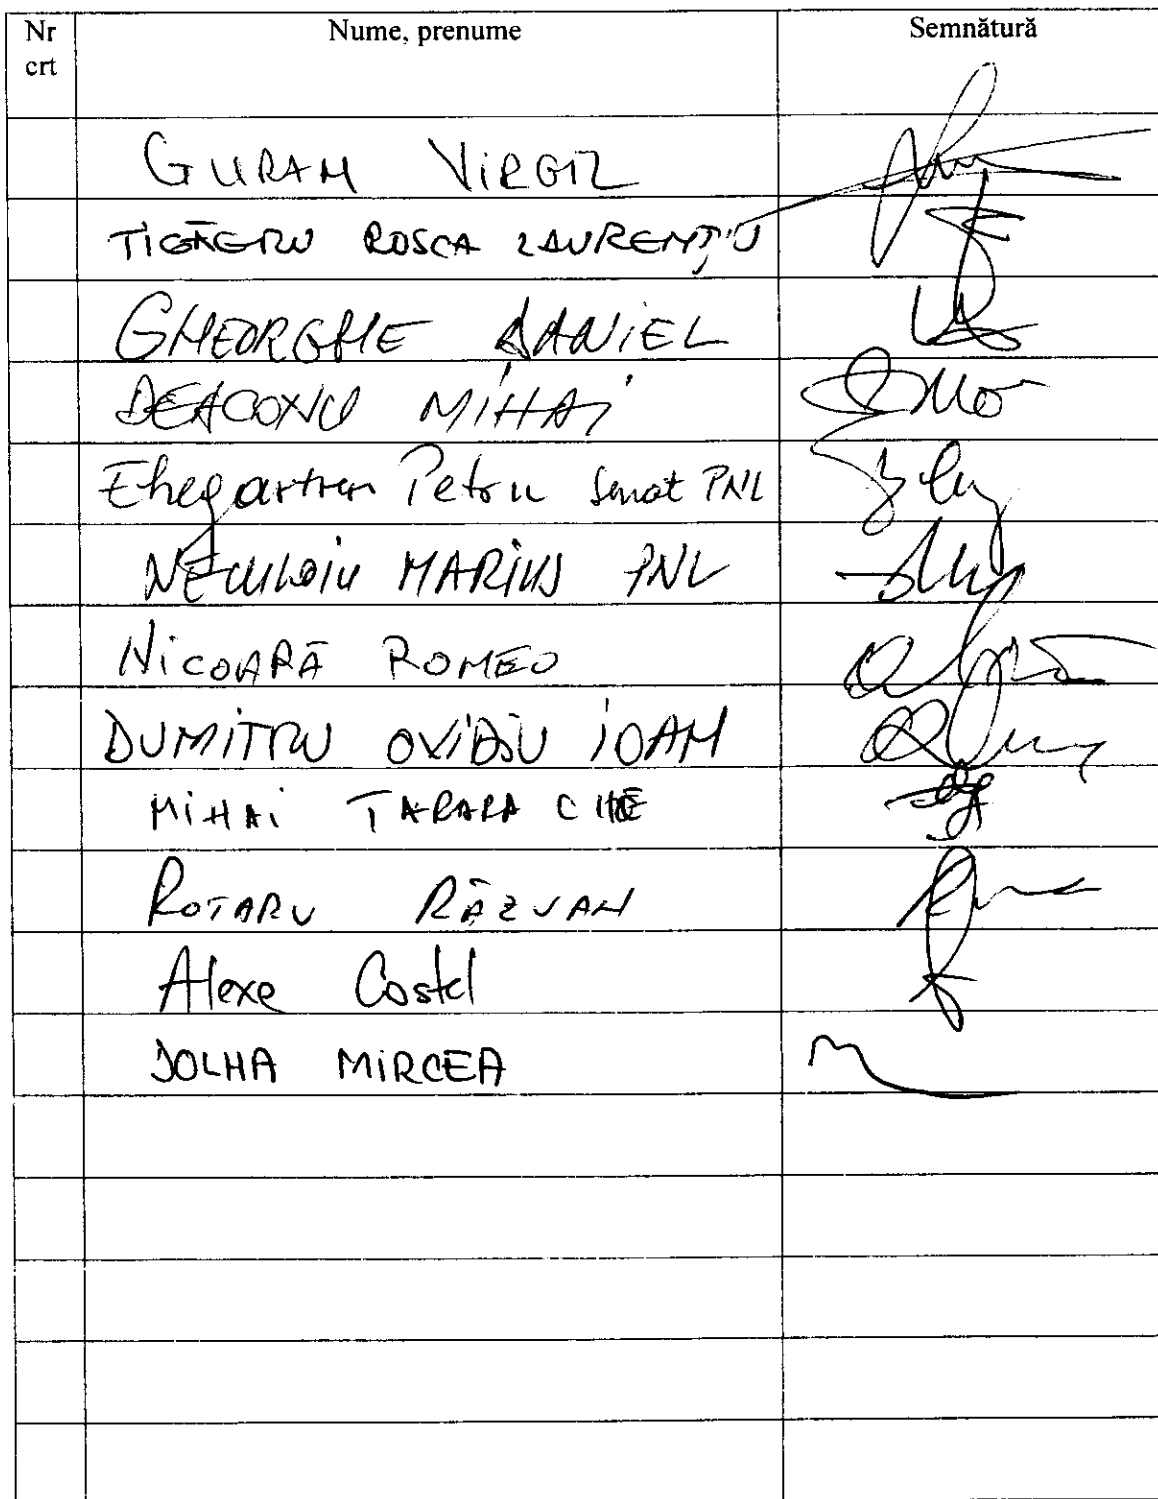 Nr crt Nume, prenume Semnătură
GURAN VIRGIL
ȚIGĂERU ROȘCA LAURENȚIU
GHEORGHE DANIEL
DEACONU MIHAI
Ehegartner Petru Senat PNL
NECULOIU MARIUS PNL
NICOARĂ ROMEO
DUMITRU OVIDIU IOAN
MIHAI TARARA
ROTARU RĂZVAN
Alexe Costel
DOLHA MIRCEA